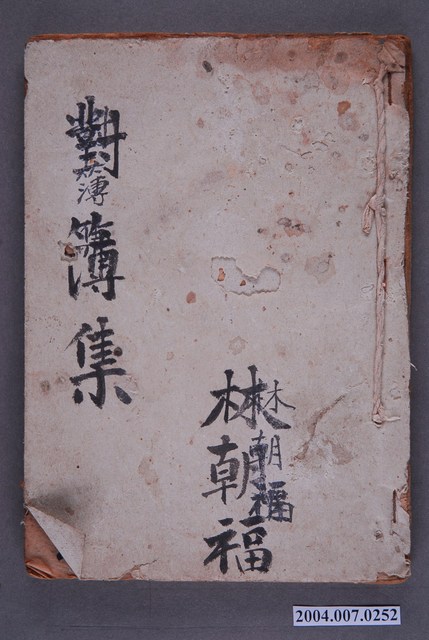 林朝福
林朝福
對簿集
薄
2004.007.0252